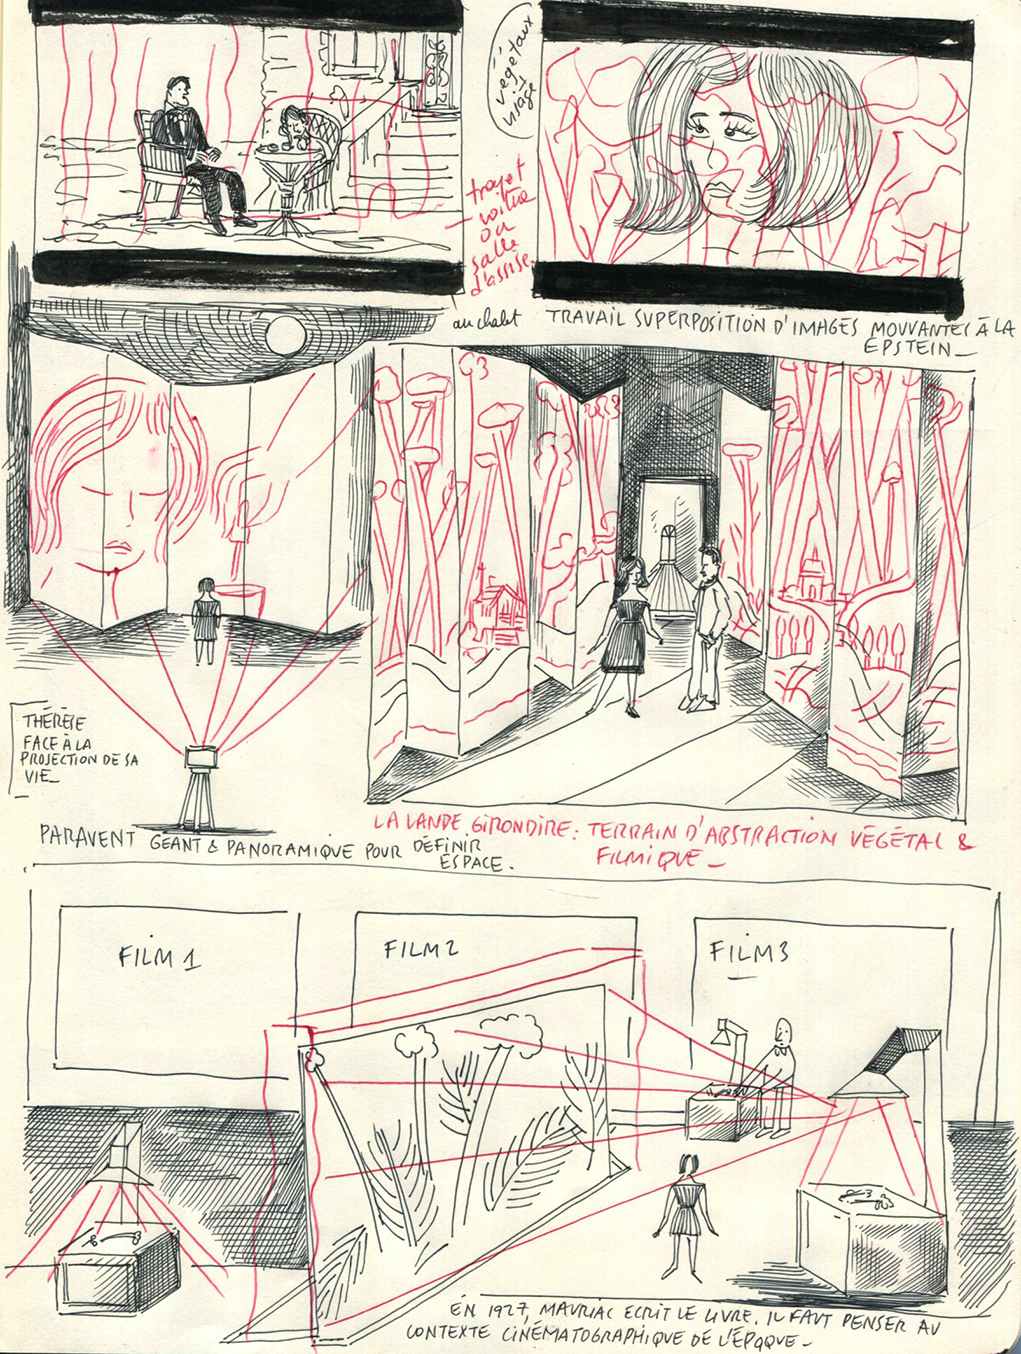 végétaux
visage
trajet
voiture
ou
salle
d'assise.
au chalet
TRAVAIL SUPERPOSITION D'IMAGES MOUVANTES À LA
EPSTEIN_
THÉRÈSE
FACE À LA
PROJECTION DE SA
VIE_
PARAVENT GÉANT & PANORAMIQUE POUR DÉFINIR
ESPACE.
LA LANDE GIRONDIRE: TERRAIN D'ABSTRACTION VÉGÉTAL &
FILMIQUE_
FILM 1
FILM 2
FILM 3
EN 1927, MAURIAC ECRIT LE LIVRE. IL FAUT PENSER AU
CONTEXTE CINÉMATOGRAPHIQUE DE L'ÉPOQUE_